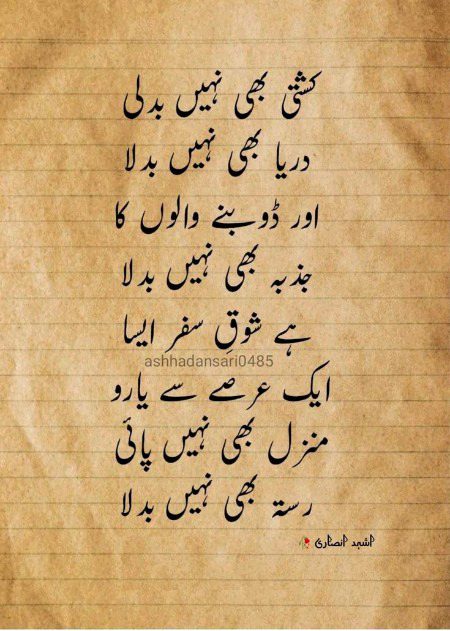 کشتی بھی نہیں بدلی
دریا بھی نہیں بدلا
اور ڈوبنے والوں کا
جذبہ بھی نہیں بدلا
ہے شوقِ سفر ایسا
ashhadansari0485
ایک عرصے سے یارو
منزل بھی نہیں پائی
رستہ بھی نہیں بدلا
اشہد انصاری